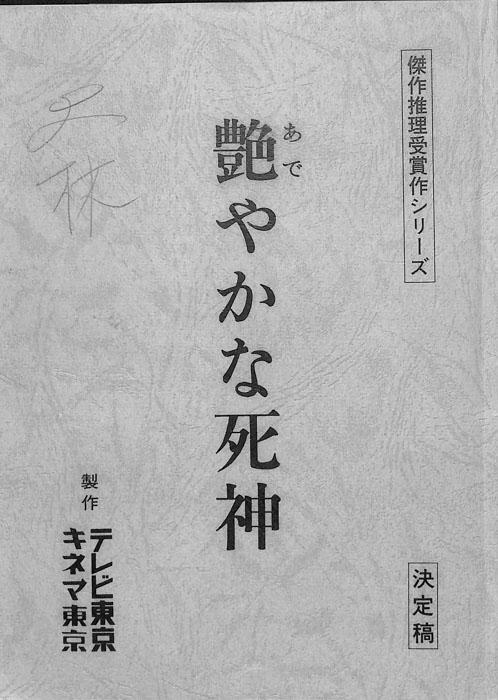 傑作推理受賞作シリーズ
艶やかな死神
あで
決定稿
製作
テレビ東京
キネマ東京